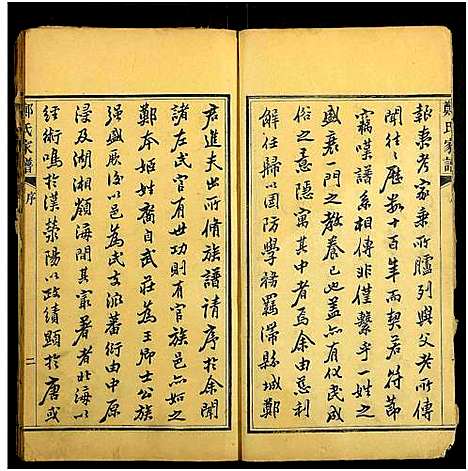 鄭氏家譜
報集考家乘所臚列與父老所傳
聞往往歷數十百年而契若符節
竊嘆譜系相傳非僅繫乎一姓之
盛衰一門之教養已也蓋亦有化民成
俗之意隱寓其中者焉余由惠利
解任歸以國防學務羈滯縣城鄭
君進夫出所脩族譜請序於余聞
諸左氏官有世功則有官族邑亦如之
鄭本姬姓裔自武莊為王卿士公族
強盛厥後以邑為氏支派蕃衍由中原
浸及湖湘嶺海間其最著者北海以
經術鳴於漢滎陽以政績顯於唐或
鄭氏家譜
序
二